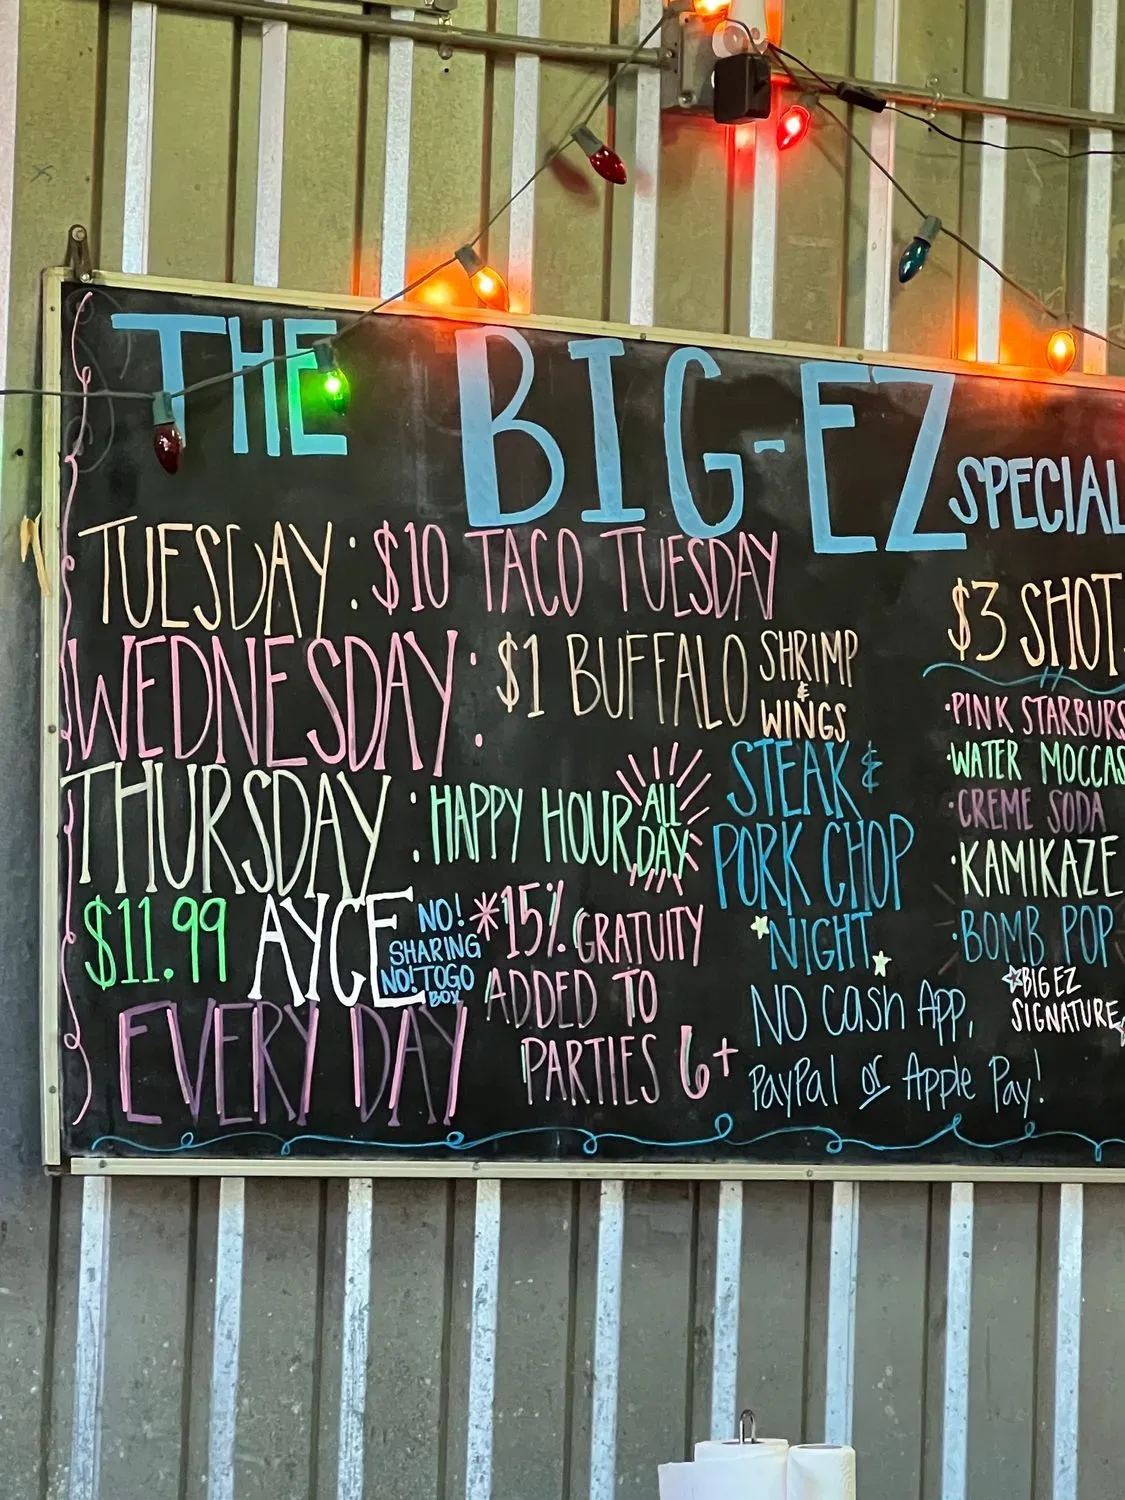 THE BIG-EZ SPECIAL
TUESDAY: $10 TACO TUESDAY
WEDNESDAY: $1 BUFFALO SHRIMP
&
WINGS
THURSDAY: HAPPY HOUR ALL
DAY
STEAK &
PORK CHOP
NIGHT
$11.99 AYCE
NO!
SHARING
NO! TOGO
BOX
EVERY DAY
*15% GRATUITY
ADDED TO
PARTIES 6+
NO Cash App,
PayPal or Apple Pay!
$3 SHOT
·PINK STARBURS
·WATER MOCCAS
·CREME SODA
·KAMIKAZE
·BOMB POP
☆BIG EZ
SIGNATURE